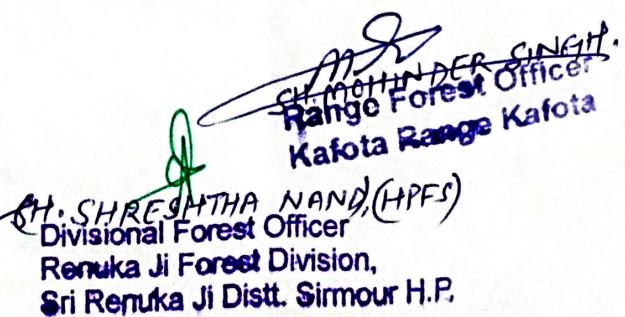 SH. MOHINDER SINGH.
Range Forest Officer
Kafota Range Kafota
SH. SHRESHTHA NAND, (HPFS)
Divisional Forest Officer
Renuka Ji Forest Division,
Sri Renuka Ji Distt. Sirmour H.P.